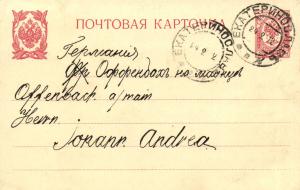 ПОЧТОВАЯ КАРТОЧКА
ЕКАТЕРИНОСЛАВЪ
ЕКАТЕРИНОСЛАВЪ
Германия
Оффенбах на майне
Offenbach a/main
Herrn
Johann Andrea